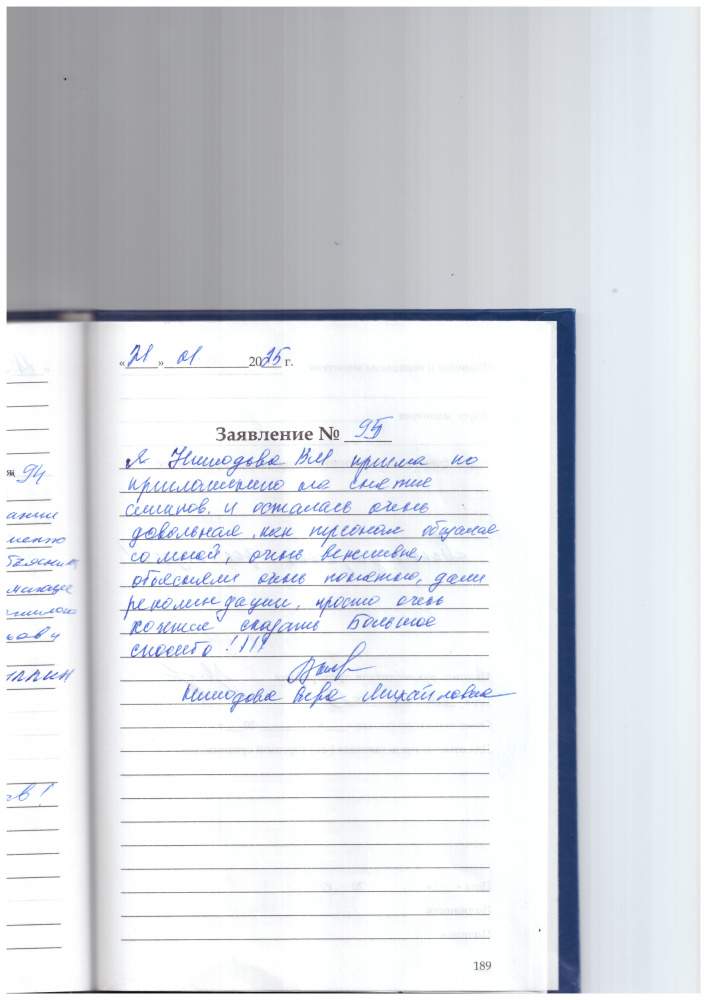 «21» 01 2025 г.
Заявление № 95
94
Я ВМ пришла по
приглашению на снятие
и осталась очень
довольная, как персонал общался
со мной, очень вежливые,
объясняли очень понятно, дали
рекомендации, просто очень
хочется сказать Большое
спасибо!!!!
Вера Михайловна
189